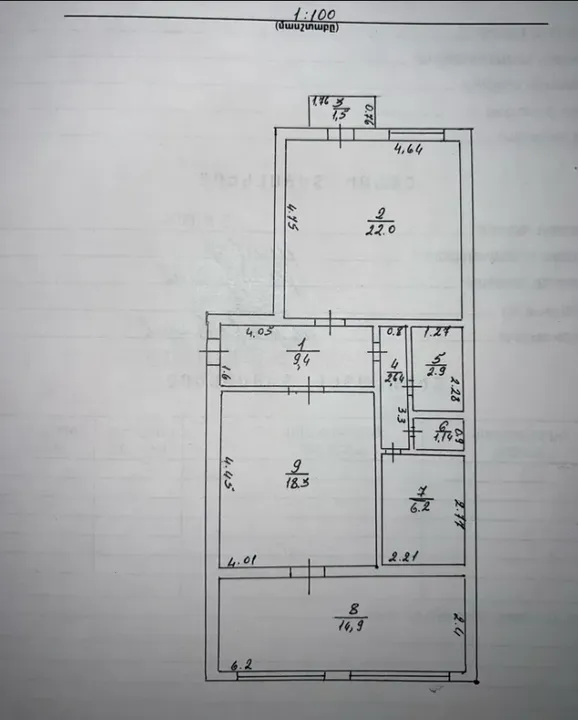 1:100
(մասշտաբը)
1,76 3 0.76
1,5
4,64
4.75
2
22.0
4.05
1
9,4
1.6
0.8
4
2,64
3.3
1.27
5
2.9
2.28
6
1,14
0.9
9
18.3
4.45
4.01
7
6.2
2.77
2.21
8
14,9
2.4
6.2